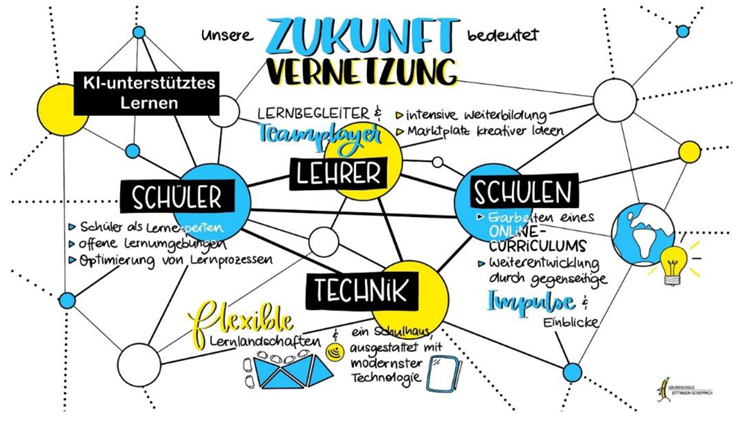 Unsere ZUKUNFT bedeutet
VERNETZUNG
KI-unterstütztes
Lernen
LERNBEGLEITER &
Teamplayer
▷ intensive Weiterbildung
▷ Marktplatz kreativer Ideen
LEHRER
SCHÜLER
▷ Schüler als Lernexperten
▷ offene Lernumgebungen
▷ Optimierung von Lernprozessen
SCHULEN
▷ Erarbeiten eines
ONLINE-
CURRICULUMS
▷ Weiterentwicklung
durch gegenseitige
Impulse &
Einblicke
TECHNIK
flexible
Lernlandschaften
& ein Schulhaus,
ausgestattet mit
modernster
Technologie
GRUNDSCHULE
JETTINGEN-SCHEPPACH